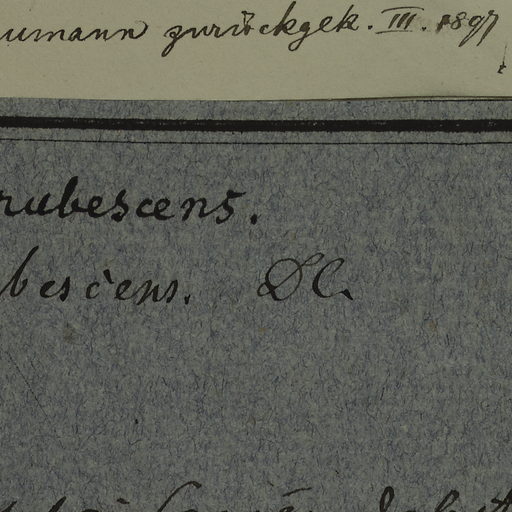 umann zurückgek. III. 1897
rubescens.
bescens. DC.